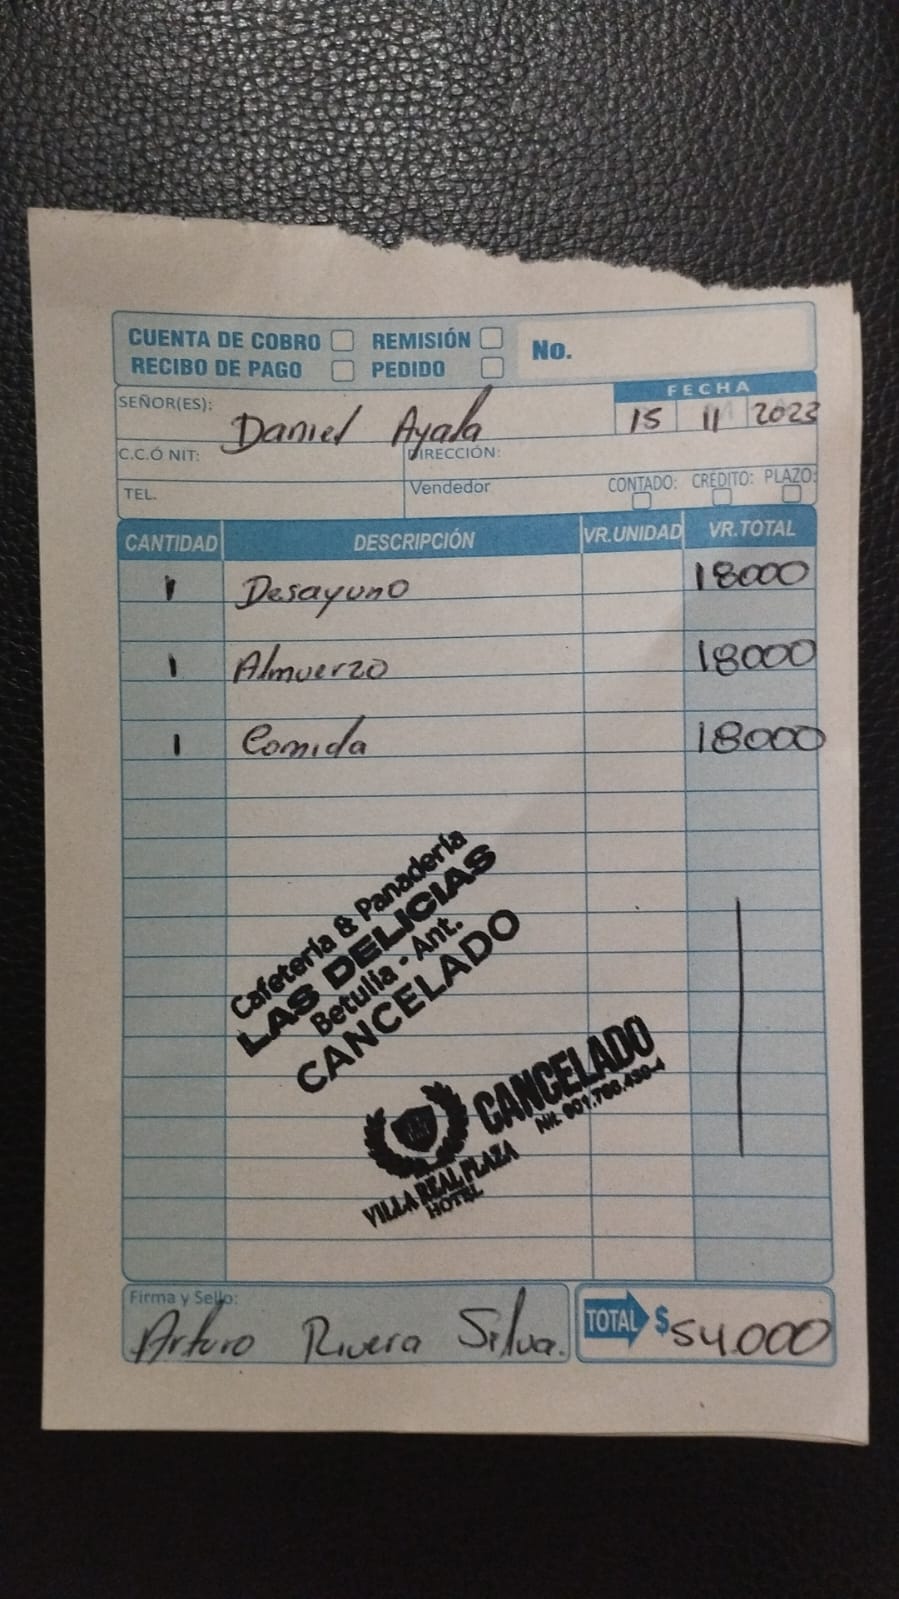 CUENTA DE COBRO REMISIÓN
RECIBO DE PAGO PEDIDO
No.
SEÑOR(ES): Daniel Ayala
FECHA
15 11 2023
C.C.Ó NIT: DIRECCIÓN:
TEL. Vendedor CONTADO: CRÉDITO: PLAZO:
CANTIDAD DESCRIPCIÓN VR.UNIDAD VR.TOTAL
1 Desayuno 18000
1 Almuerzo 18000
1 Comida 18000
Cafetería & Panadería
LAS DELICIAS
Betulia - Ant.
CANCELADO
CANCELADO
Nit. 901.766.430-4
VILLA REAL PLAZA
HOTEL
Firma y Sello: Arturo Rivera Silva.
TOTAL $ 54.000